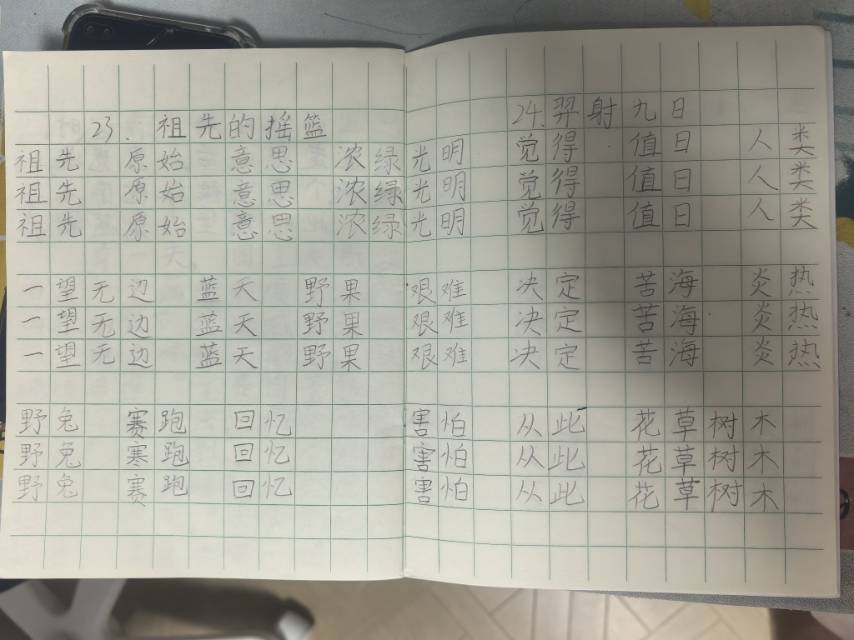 23. 祖先的摇篮
祖先 原始 意思 浓绿
祖先 原始 意思 浓绿
祖先 原始 意思 浓绿
一望无边 蓝天 野果
一望无边 蓝天 野果
一望无边 蓝天 野果
野兔 赛跑 回忆
野兔 寒跑 回忆
野兔 赛跑 回忆
24.羿射九日
光明 觉得 值日 人类
光明 觉得 值日 人类
光明 觉得 值日 人类
艰难 决定 苦海 炎热
艰难 决定 苦海 炎热
艰难 决定 苦海 炎热
害怕 从此 花草树木
害怕 从此 花草树木
害怕 从此 花草树木